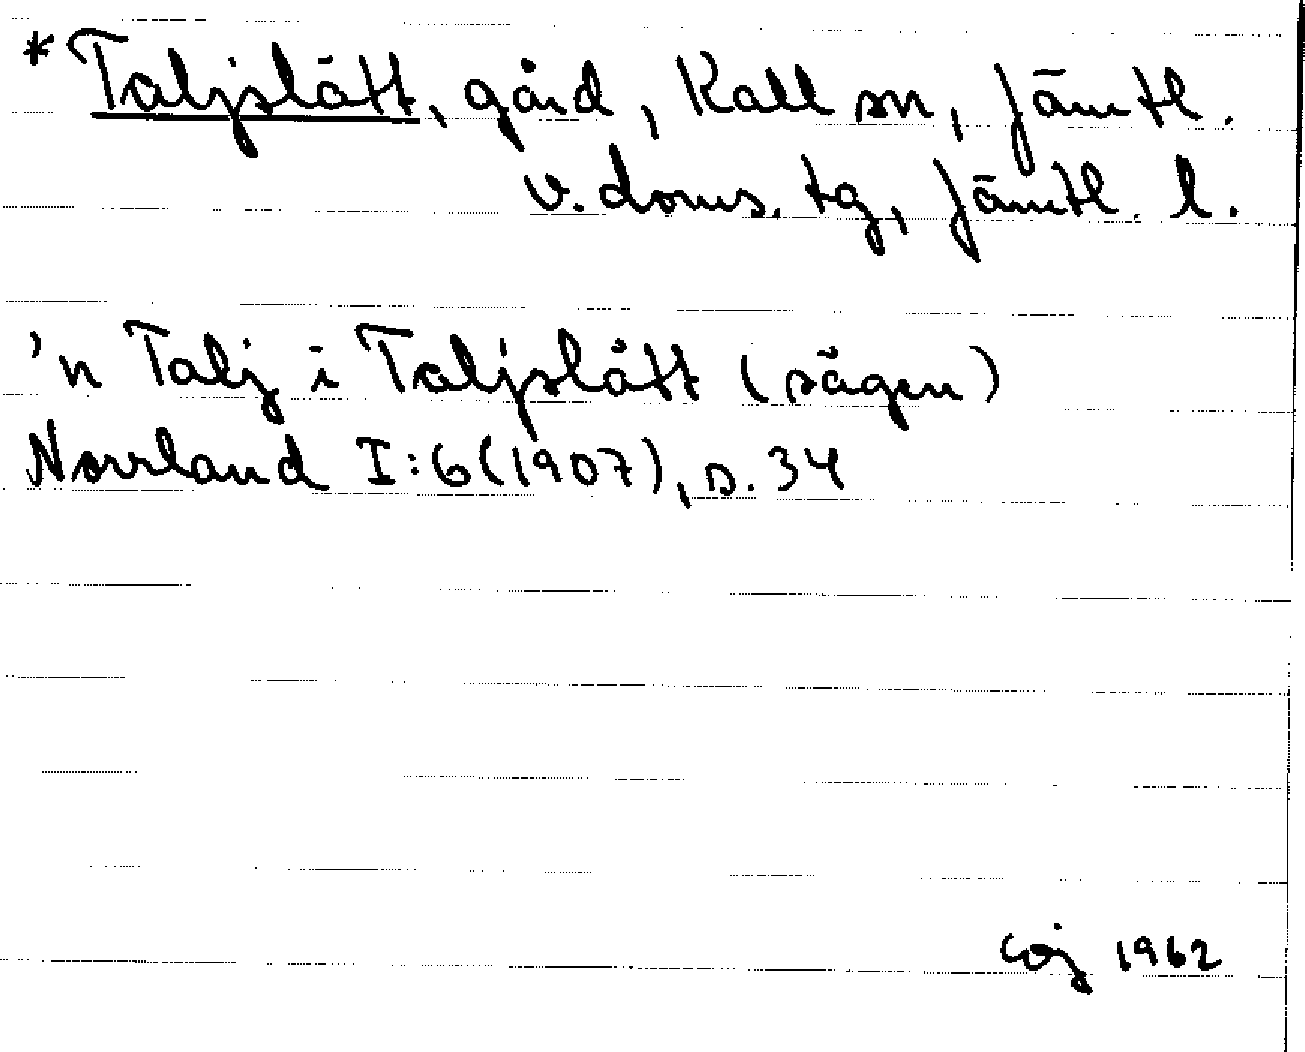 * Taljslått, gård, Kall sn, Jämtl.
v. doms. tg, Jämtl. l.
'n Talj i Taljslått (sägen)
Norrland I:6 (1907), s. 34
1962